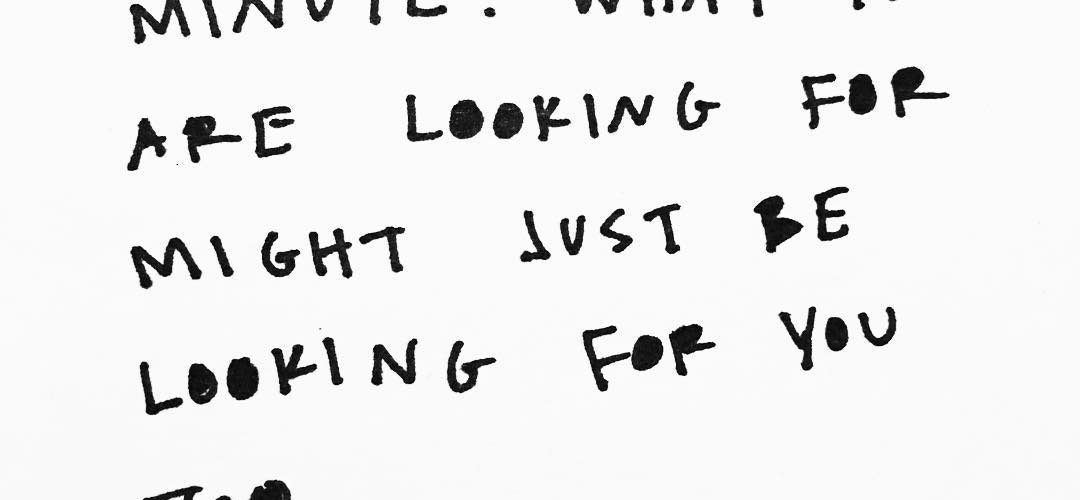 MINUTE. WHAT
ARE LOOKING FOR
MIGHT JUST BE
LOOKING FOR YOU
TOO